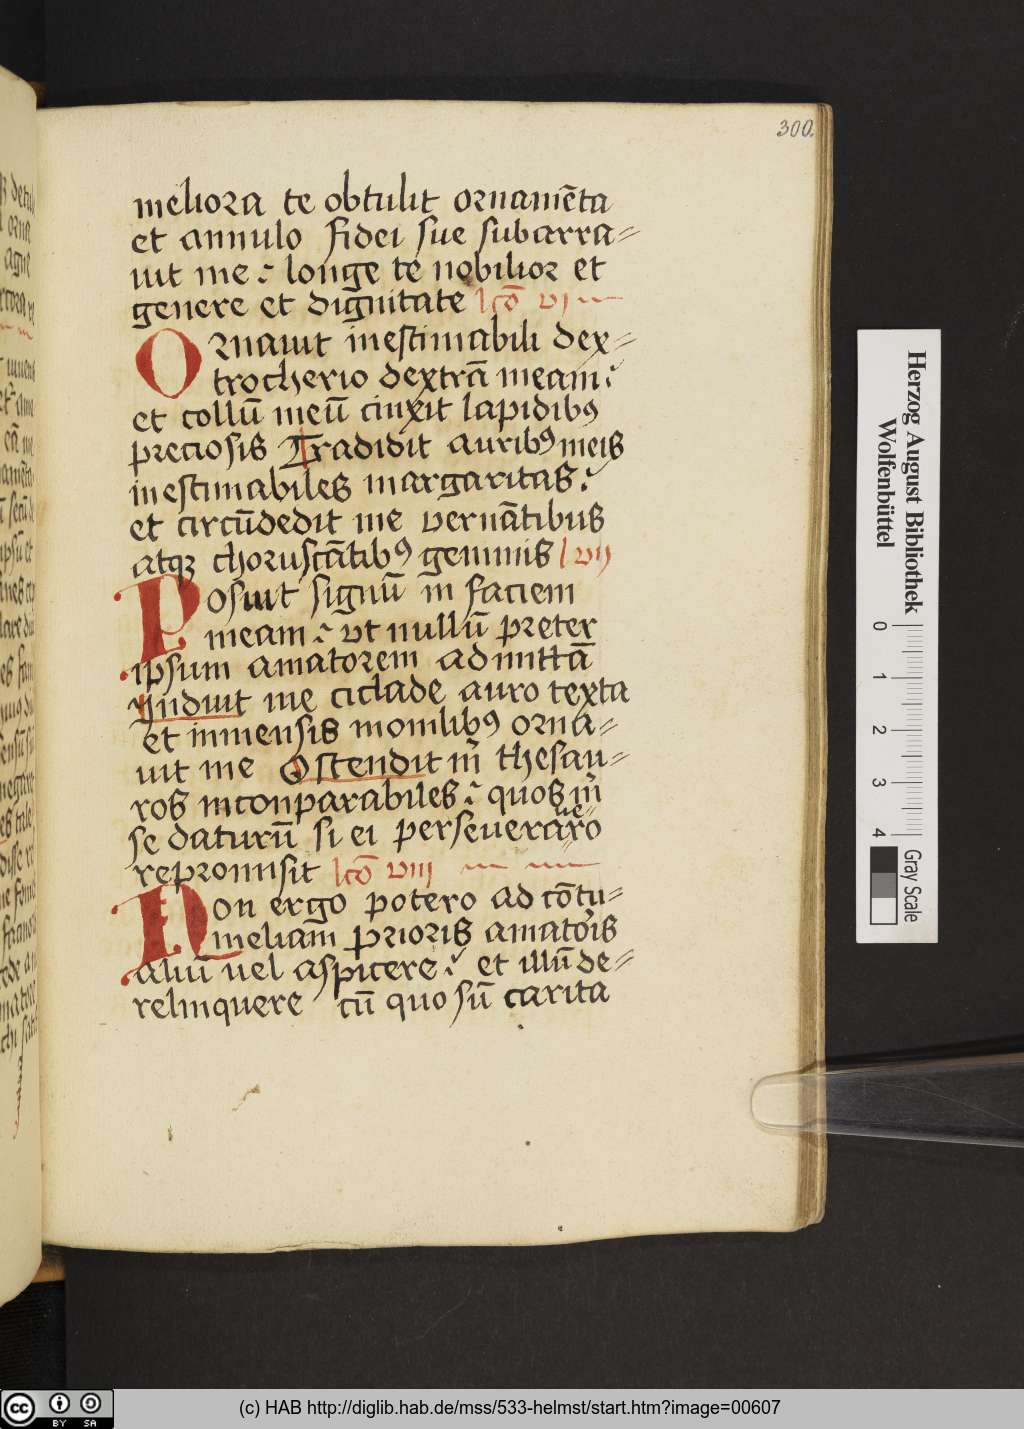 300.
meliora te obtulit ornamēta
et annulo fidei sue subarra=
uit me : longe te nobilior et
genere et dignitate lcō vi
Ornauit inestimabili dex=
trocherio dextrā meam :
et collū meū cinxit lapidibꝰ
preciosis Tradidit auribꝰ meis
inestimabiles margaritas :
et circūdedit me vernātibus
atqꝫ choruscātibꝰ gemmis l vij
Posuit signū in faciem
meam : ut nullū preter
ipsum amatorem admittā
Induit me ciclade auro texta
et inmensis monilibꝰ orna=
uit me Ostendit m̄ thesau=
ros inconparabiles : quos m̄
se daturū si ei perseueraro
ue=
repromisit lcō viii
Non ergo potero ad cōtu=
meliam prioris amatoris
aliū uel aspicere : et illū de=
relinquere cū quo sū carita
Herzog August Bibliothek
Wolfenbüttel
0 1 2 3 4
Gray Scale
cc BY SA
(c) HAB http://diglib.hab.de/mss/533-helmst/start.htm?image=00607